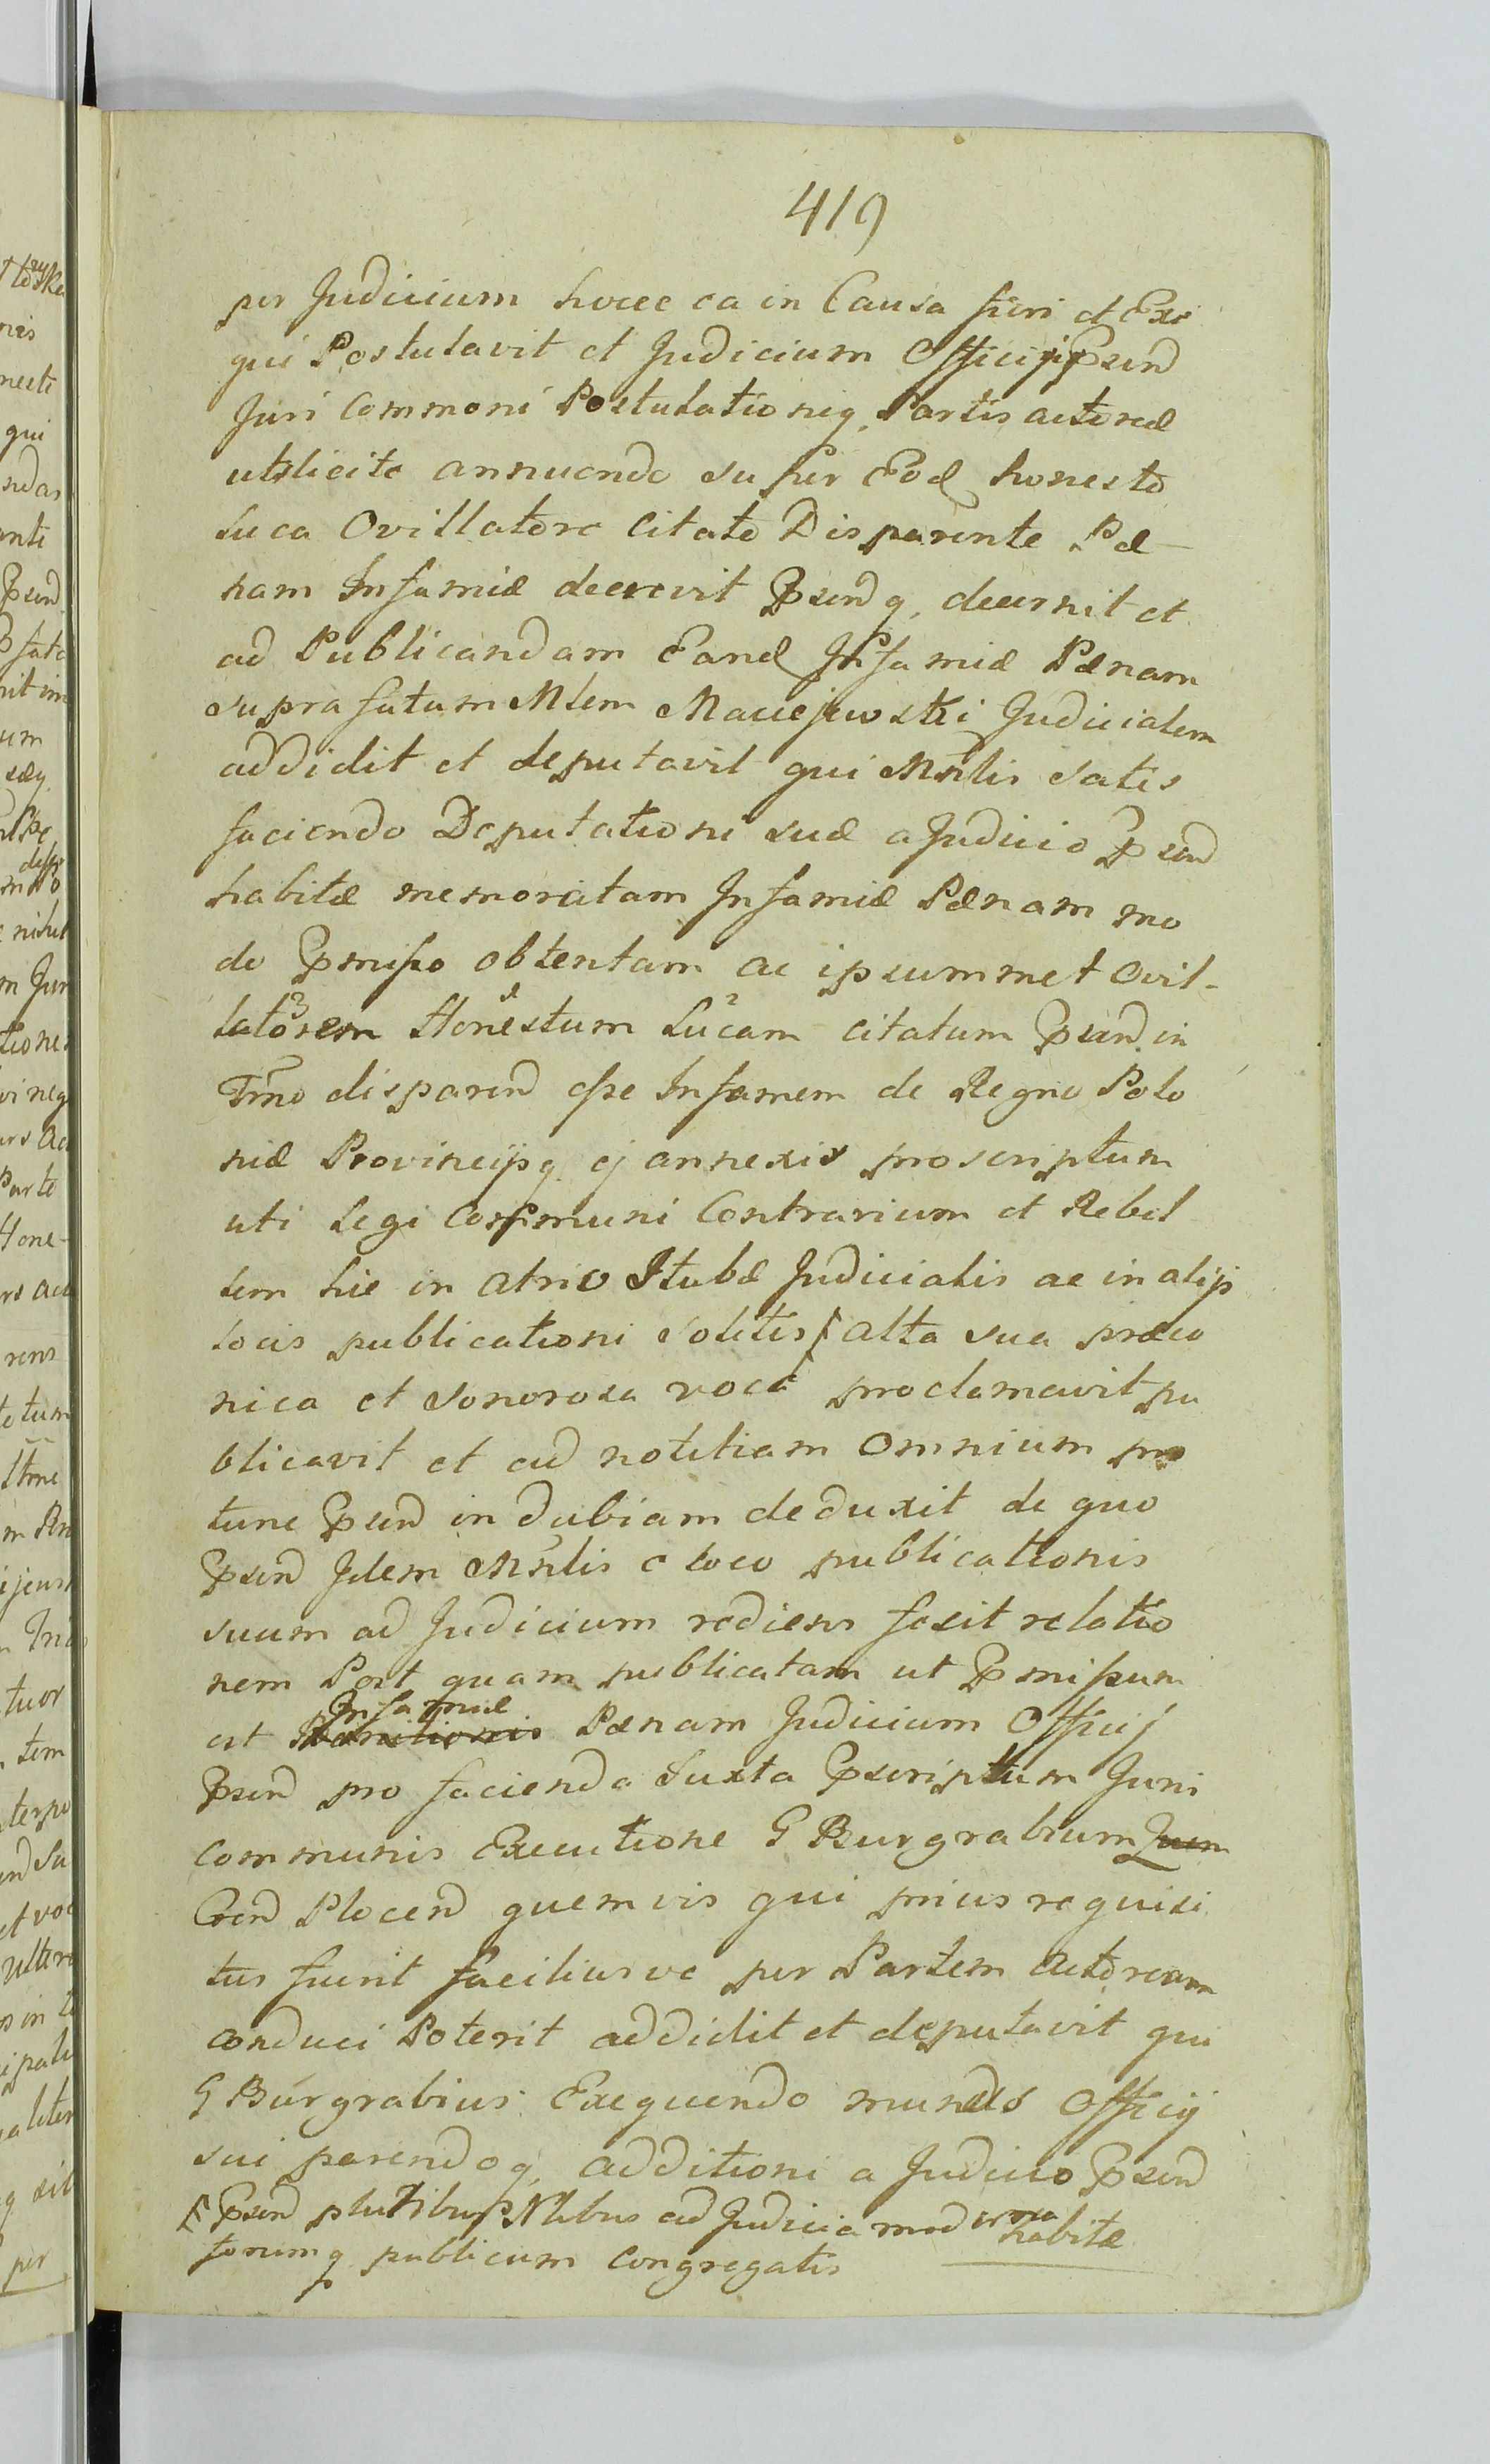 419
per Judicium hocce ea in Causa fieri et Exe
qui Postulavit et Judicium Officij Psens
Juri Commoni Postulationiq. Partis actoreæ
utslicite annuendo super Eod honesto
Luca Ovillatore Citato Disparente Pæ-
nam Infamiæ decrevit Psensq. decernit et
ad Publicandam Eand Infamiæ Pænam
suprafatum Mlem Maciejewski Judicialem
addidit et deputavit qui Mnlis satis
faciendo Deputationi suæ a Judicio Psen
habitæ memoratam Infamiæ Pænam mo
do Pmisso obtentam ac ipsummet Ovil-
latorem Honestum Lucam citatum Psen in
Tmno disparen esse Infamem de Regno Polo
niæ Provincijsq ej annexis proscriptum
uti Legi Communi Contrarium et Rebel
lem hic in atrio Stubæ Judicialis ac in alijs
locis publicationi solitis alta sua præco
nica et sonorosa voce proclamavit pu
blicavit et ad notitiam Omnium pro
tunc Psen indubiam deduxit de quo
Psen Idem Mnlis e loco publicationis
suum ad Judicium rediens fecit relatio
nem Post quam publicatam ut Pmissum
Infamiæ
est Pænam Judicium Officij
Psen pro facienda Juxta Pscriptum Juris
communis Executione G Burgrabium Quem
Cren Plocen quemvis qui prius requisi
tus fuerit faciliusve per Partem actoream
conduci Poterit addidit et deputavit qui
G Burgrabius Exequendo munus Officij
sui parendoq. additioni a Judicio Psen
habitæ
Psen pluribus Nlibus ad Judicia
forumq publicum congregatis